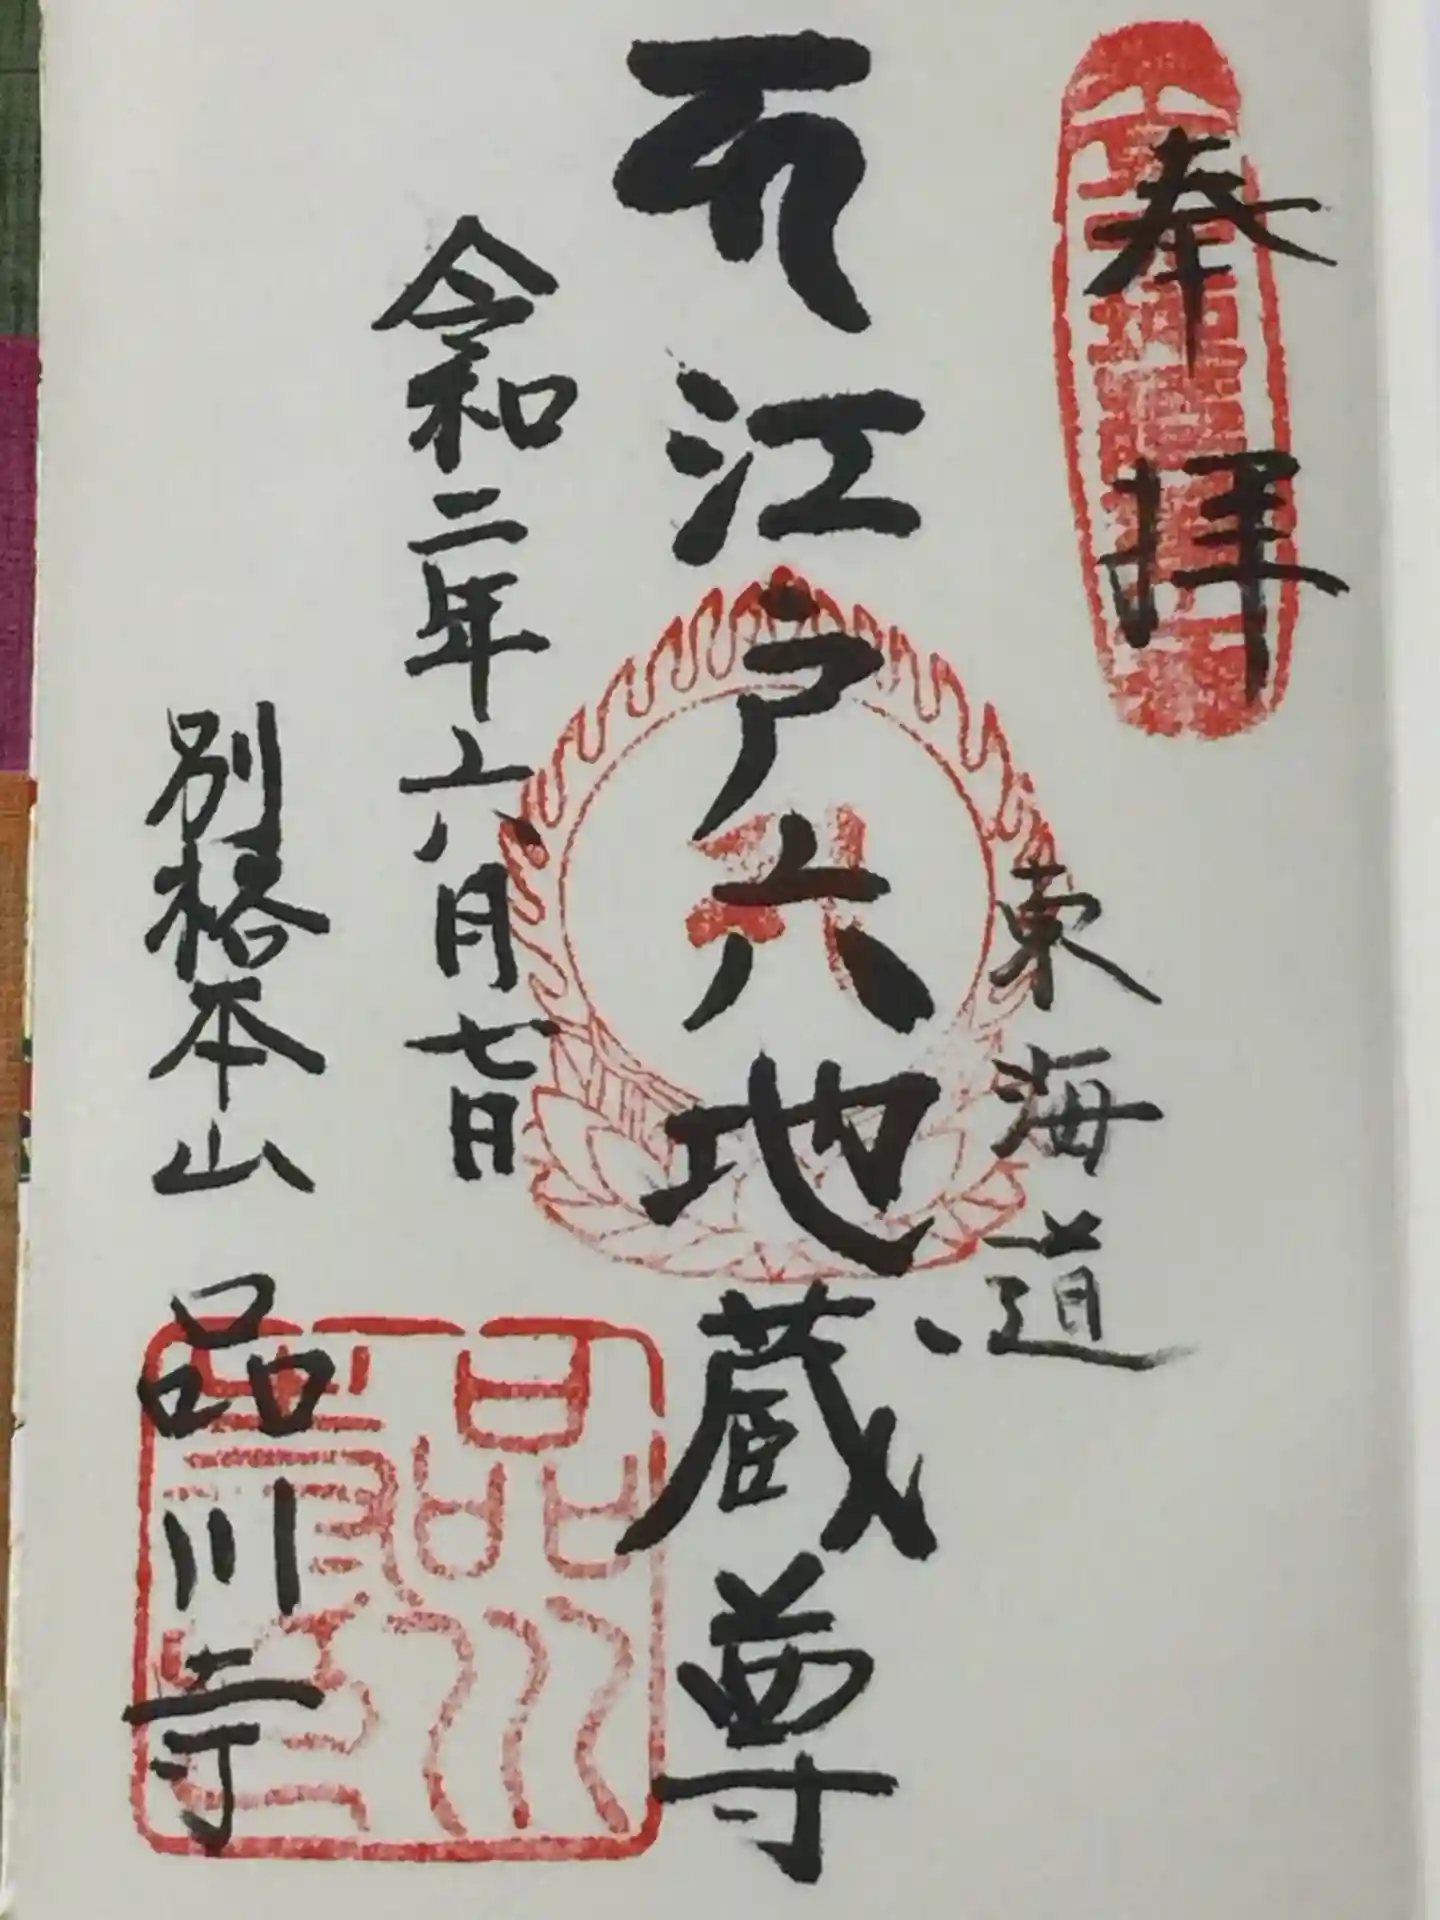 奉拝
東海道
江戸六地蔵尊
令和二年六月七日
別格本山 品川寺